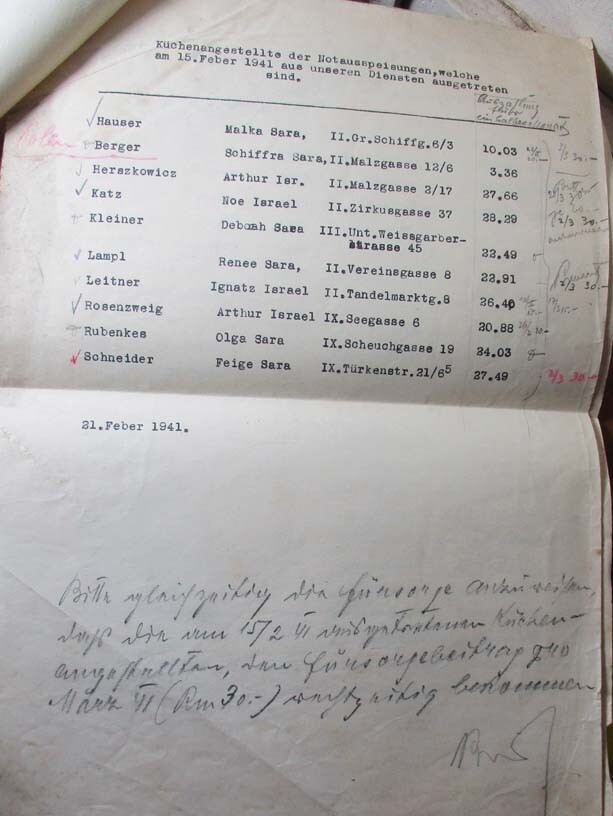 Küchenangestellte der Notausspeisungen, welche
am 15.Feber 1941 aus unseren Diensten ausgetreten
sind.
Auszahlung
Hauser Malka Sara, II.Gr.Schiffg.6/3 10.03 2/3 30.-
Polen
Berger Schiffra Sara, II.Malzgasse 12/6 3.36
Herszkowicz Arthur Isr. II.Malzgasse 2/17 27.66 2/3 30.-
Katz Noe Israel II.Zirkusgasse 37 28.29 2/3 30.-
Kleiner Deborah Sara III.Unt.Weissgarber-
strasse 45 22.49
Lampl Renee Sara, II.Vereinsgasse 8 22.91 2/3 30.-
Leitner Ignatz Israel II.Tandelmarktg.8 26.40
Rosenzweig Arthur Israel IX.Seegasse 6 20.88
Rubenkes Olga Sara IX.Scheuchgasse 19 24.03
Schneider Feige Sara IX.Türkenstr.21/65 27.49 2/3 30.-
21.Feber 1941.
Bitte gleichzeitig die Fürsorge anzuweisen,
daß die am 15/2 41 ausgetretenen Küchen-
angestellten, den Fürsorgebeitrag pro
März 41 (Rm 30.-) rechtzeitig bekommen